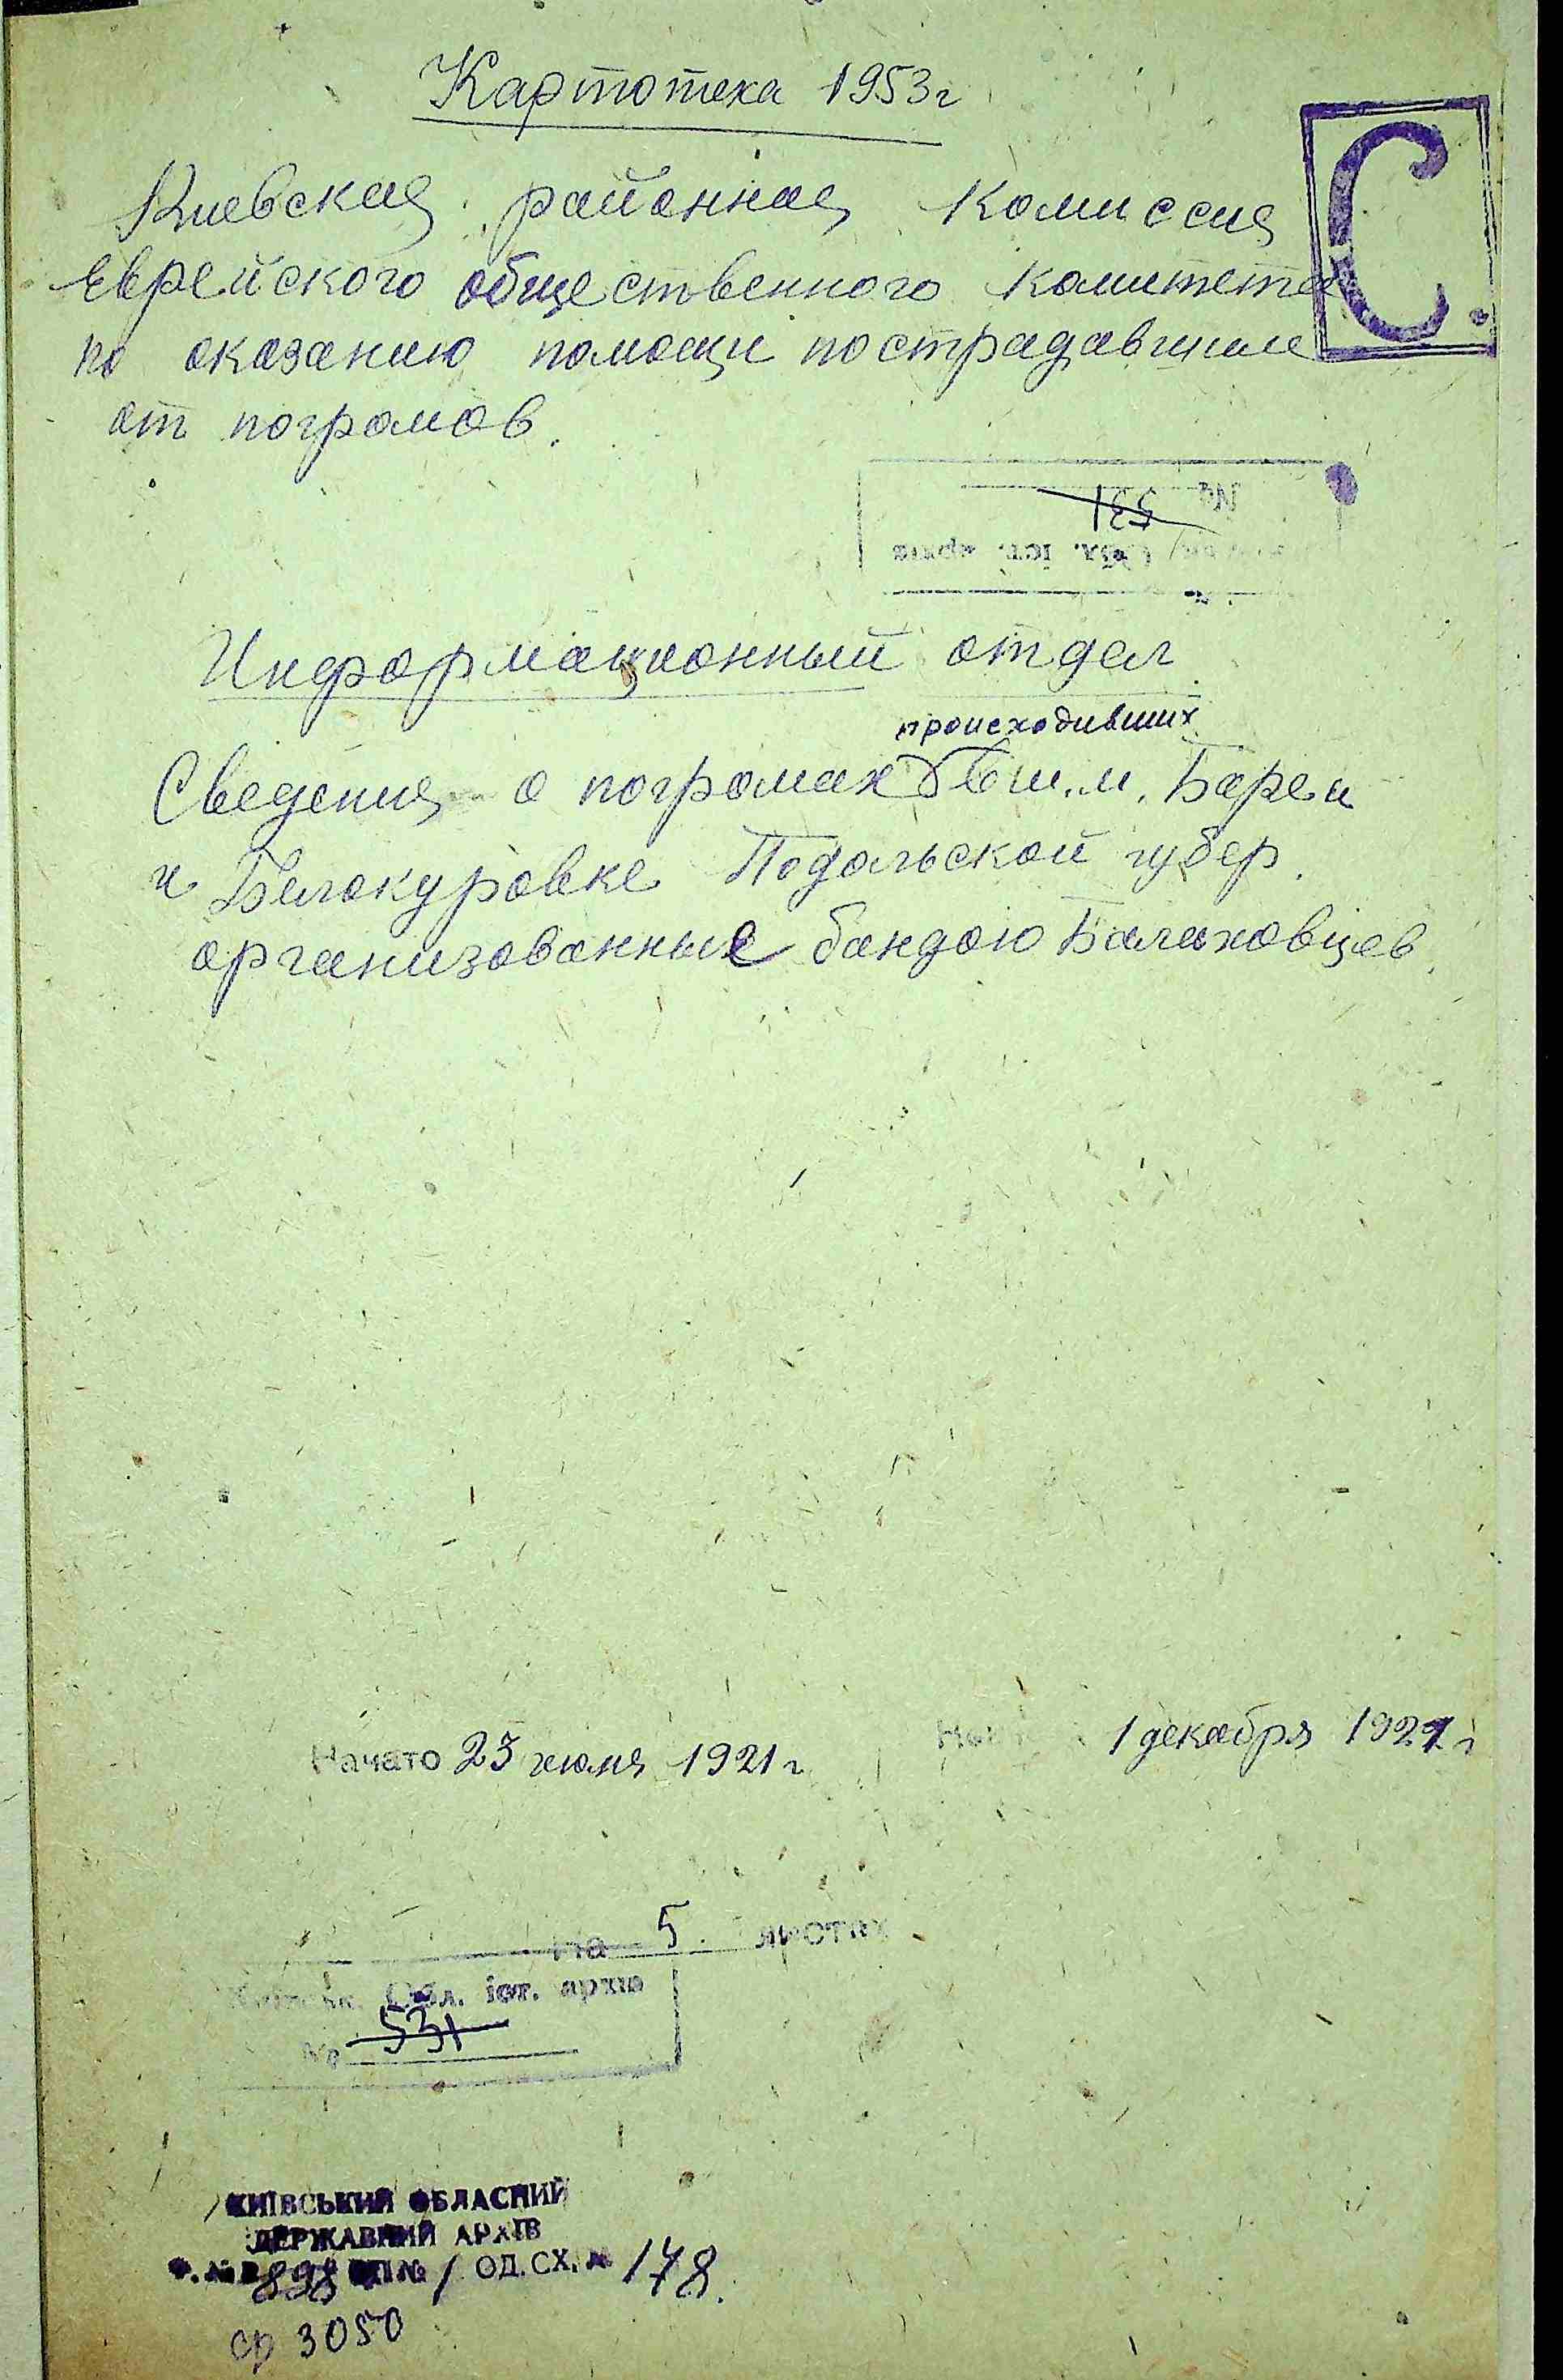 Картотека 1953г
Киевская районная Комиссия
Еврейского общественного комитета
по оказанию помощи пострадавшим
от погромов.
С.
№ 531
Информационный отдел.
происходивших
Сведения о погромах в м.м. Баре и
и Белокуровке Подольской губер.
организованные бандою Балаховцев.
Начато 23 июля 1921 г
1 декабря 1921 г
на 5. листах
Обл. іст. архів
№ 531
КИЇВСЬКИЙ ОБЛАСНИЙ
ДЕРЖАВНИЙ АРХІВ
Ф. № 898 ОП № 1 ОД. СХ. № 178.
ср 3050